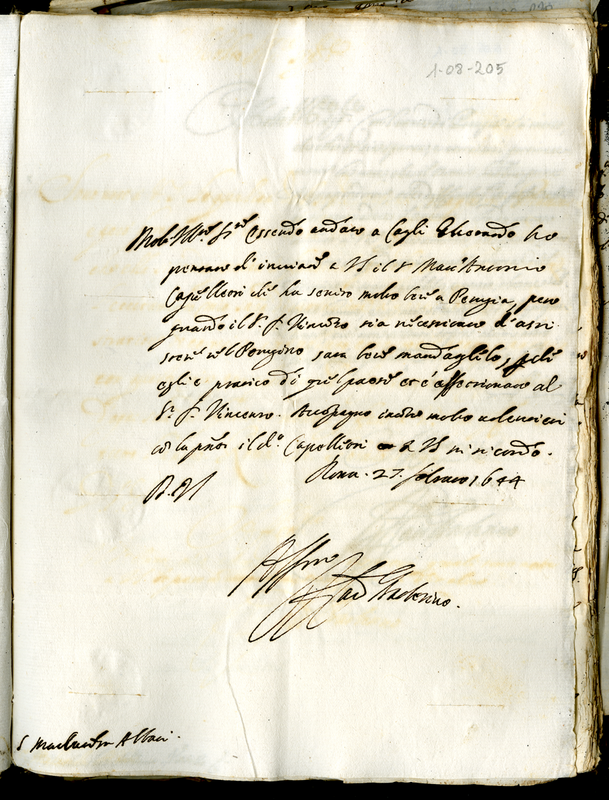 1-08-205
Molto Ill.re Sig.re Essendo andato a Cagli Gherardo ho
pensato d'inviare a VS il S.r Marc'Antonio
Capelletti che ha servito molto bene a Perugia, però
quando il S.r F. Vincenzo sia necessitato d'assi
stere nel Perugino sarà bene mandaglielo, perche
egli è pratico di quel paese et è affectionato al
S.r F. Vincenzo. Accopagno molto volentieri
co la pñte il d.o Capelletti a VS mi ricordo.
Roma. 27. febraro 1644
D. VS
Aff.mo
Barberino.
S